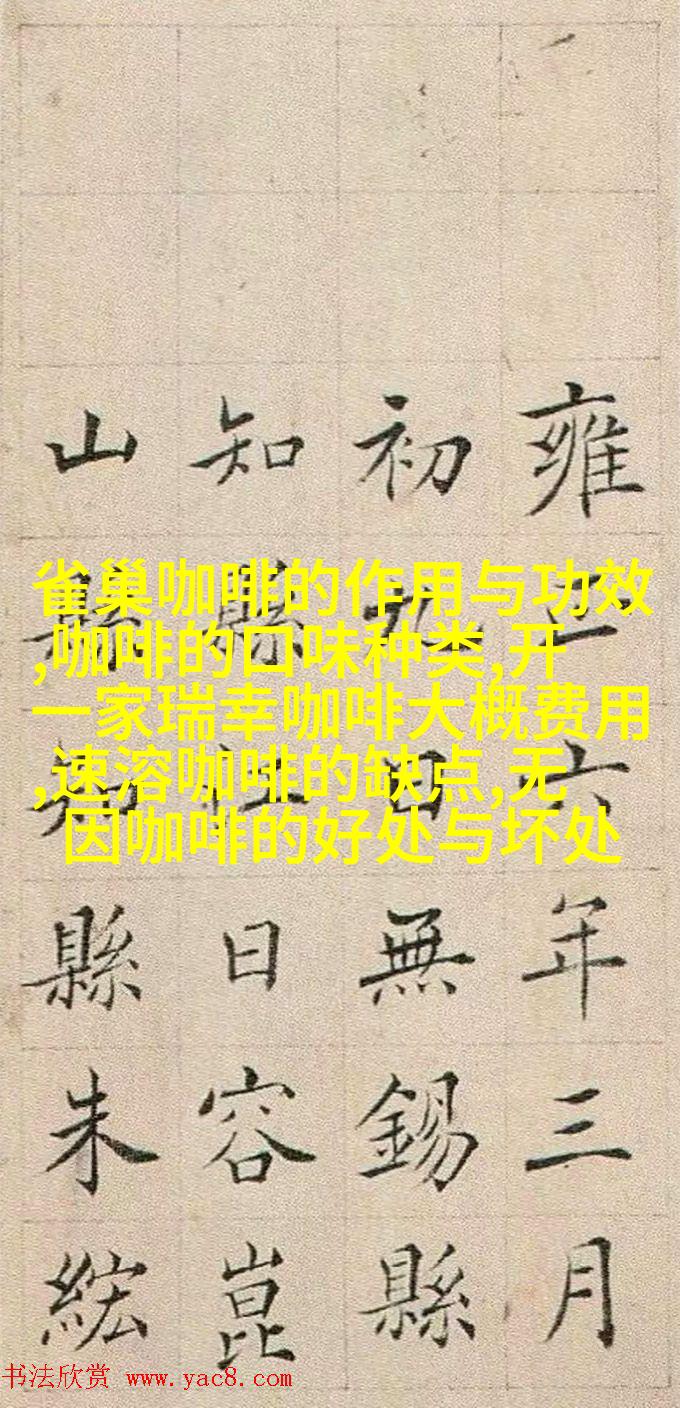 雍正六年三月
初九日無錫縣
知縣江日容崑
山縣知縣朱紘
雀巢咖啡的作用与功效
,咖啡的口味种类,开
一家瑞幸咖啡大概费用
,速溶咖啡的缺点,无
因咖啡的好处与坏处
书法欣赏 www.yac8.com